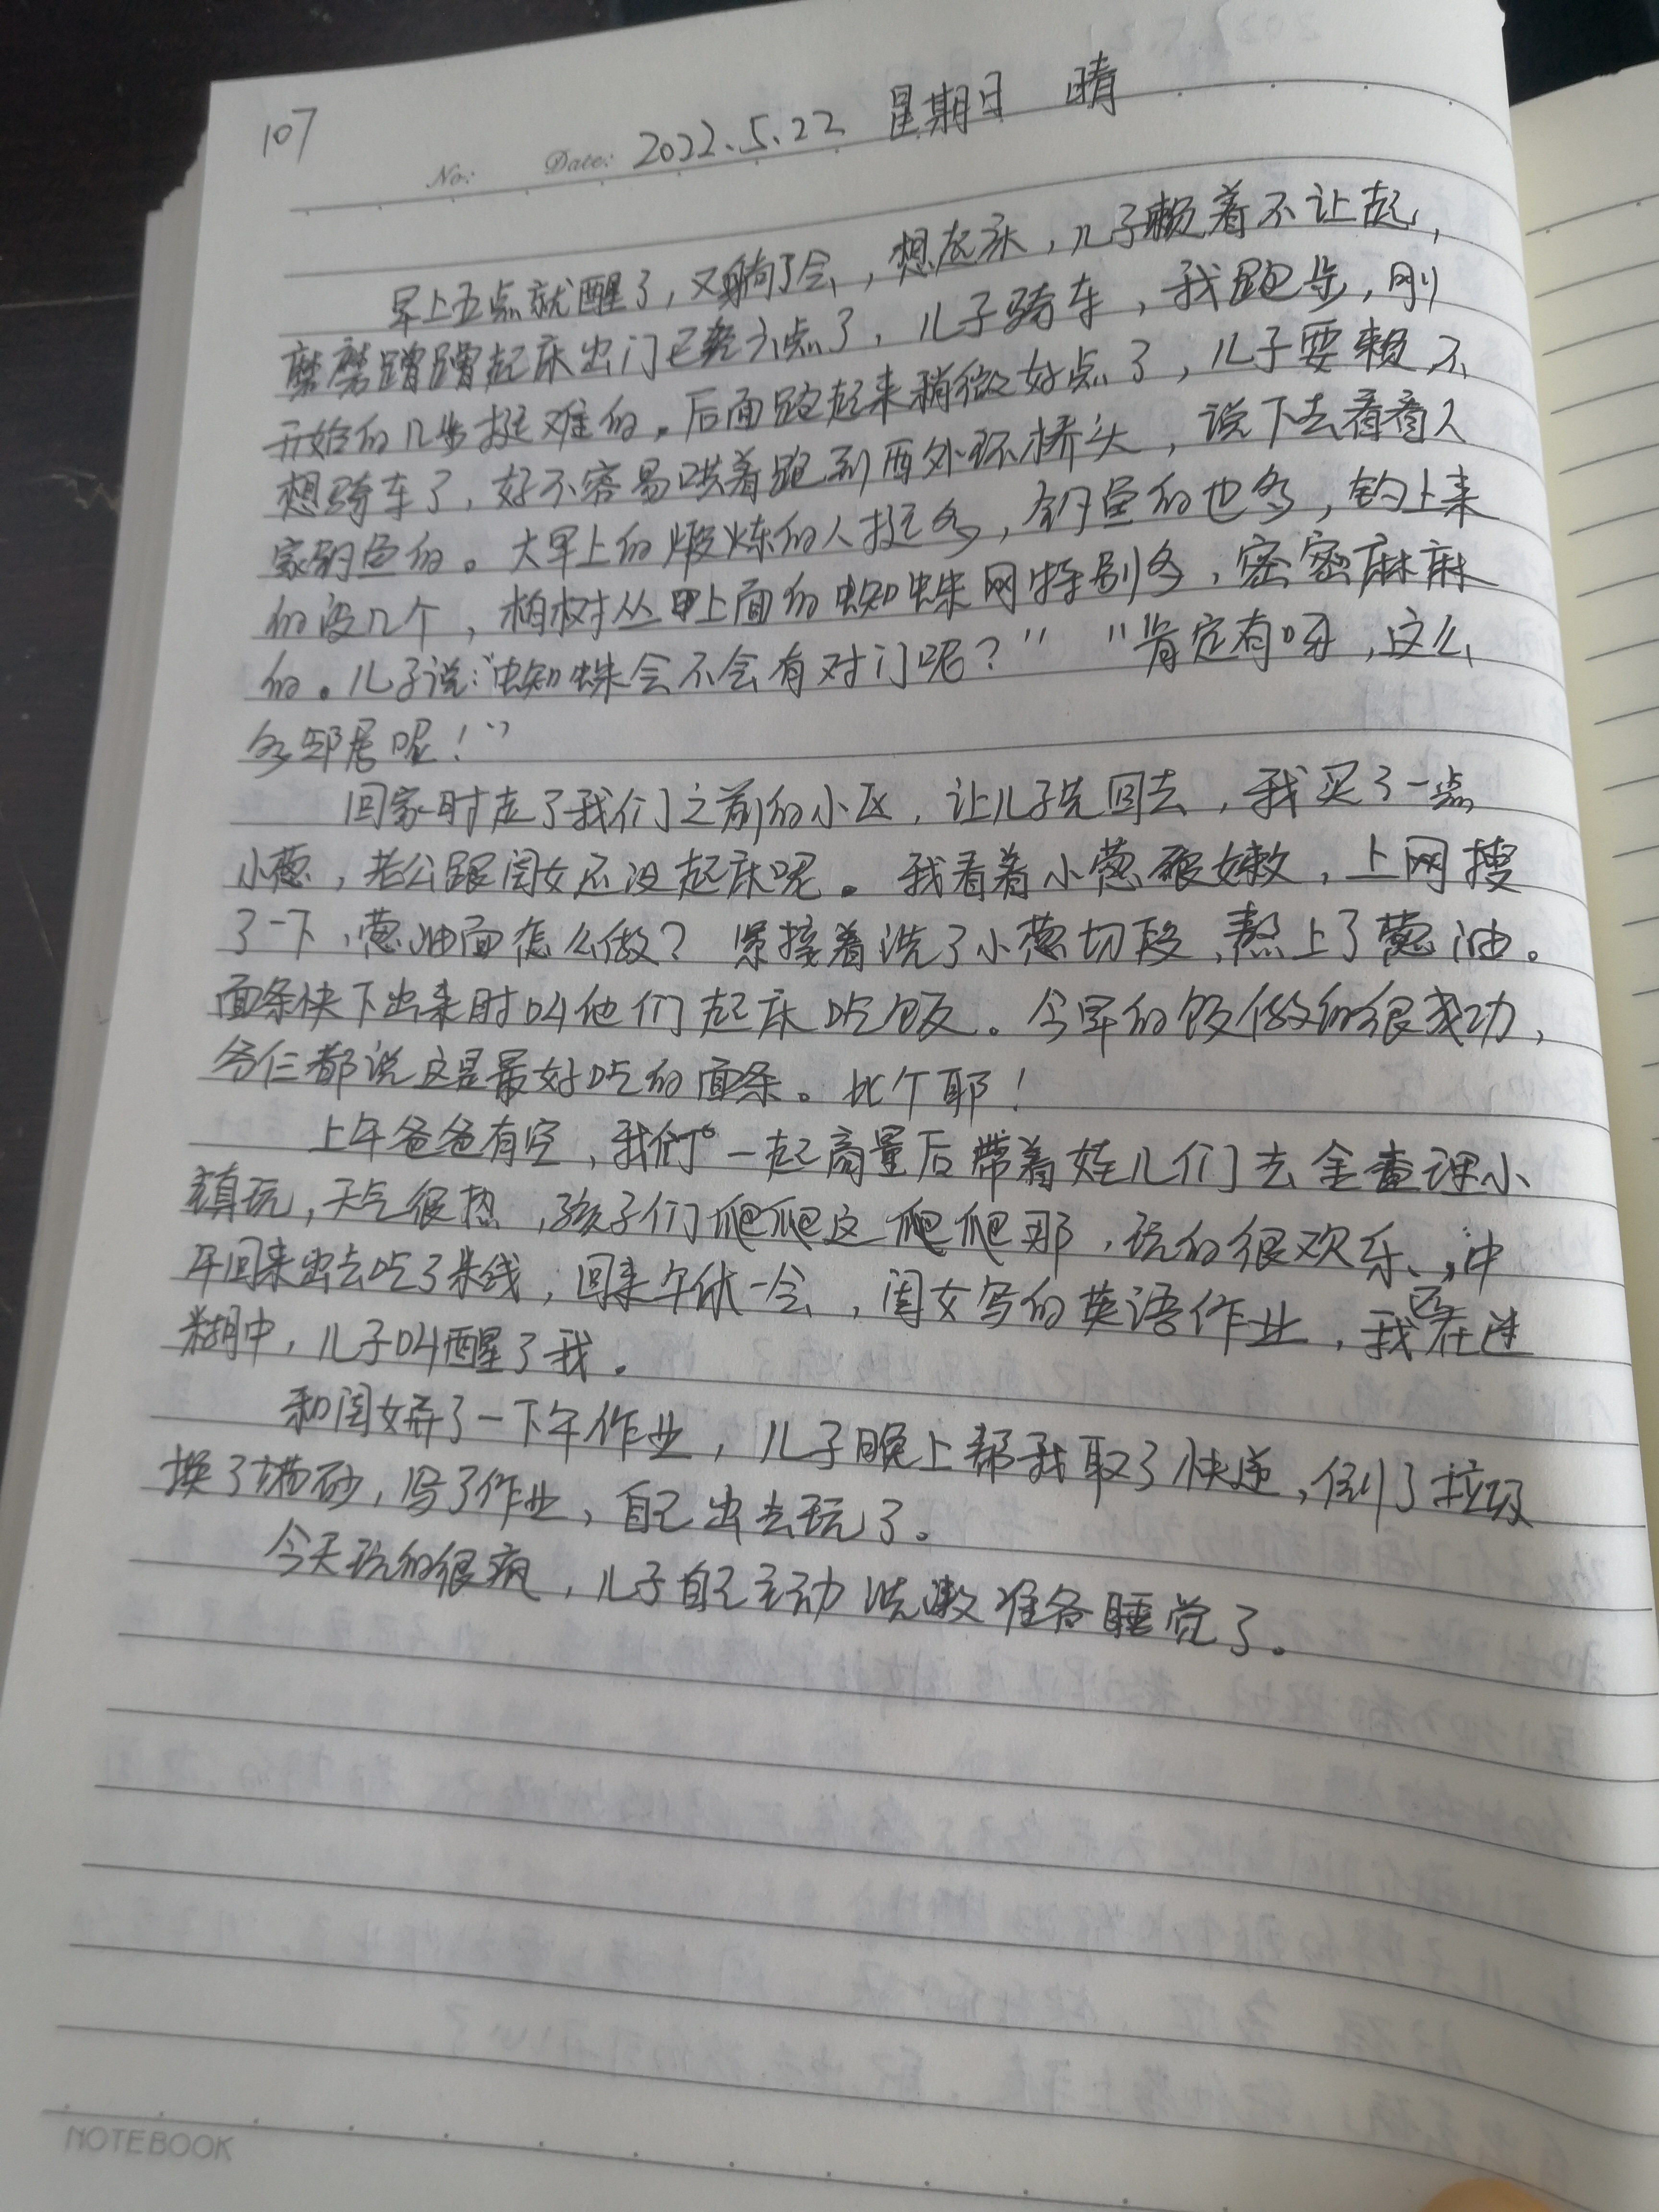 107
No: Date: 2022.5.22 星期日 晴
早上五点就醒了，又躺了会，想起床，儿子赖着不让起，
磨磨蹭蹭起床出门已经六点了，儿子骑车，我跑步，刚
开始的几步挺难的。后面跑起来稍微好点了，儿子耍赖不
想骑车了，好不容易哄着跑到西外环桥头，说下去看看人
家钓鱼的。大早上的煅炼的人挺多，钓鱼的也多，钓上来
的没几个，柏树丛上面的蜘蛛网特别多，密密麻麻
的。儿子说：“蜘蛛会不会有对门呢？” “肯定有呀，这么
多邻居呢！”
回家时走了我们之前的小区，让儿子先回去，我买了一点
小葱，老公跟闺女还没起床呢。我看着小葱很嫩，上网搜
了一下，葱油面怎么做？紧接着洗了小葱切段，熬上了葱油。
面条快下出来时叫他们起床吃饭。今早的饭做的很成功，
爷仨都说这是最好吃的面条。比个耶！
上午爸爸有空，我们一起商量后带着娃儿们去金查理小
镇玩，天气很热，孩子们爬爬这爬爬那，玩的很欢乐，中
午回来出去吃了米线，回来午休一会，闺女写的英语作业，我正在迷
糊中，儿子叫醒了我。
和闺女弄了一下午作业，儿子晚上帮我取了快递，倒了垃圾
换了猫砂，写了作业，自己出去玩了。
今天玩的很疯，儿子自己主动洗漱准备睡觉了。
NOTEBOOK